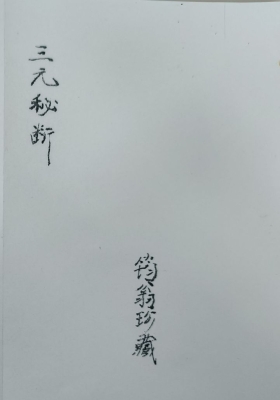 三元秘断
筠翁珍藏